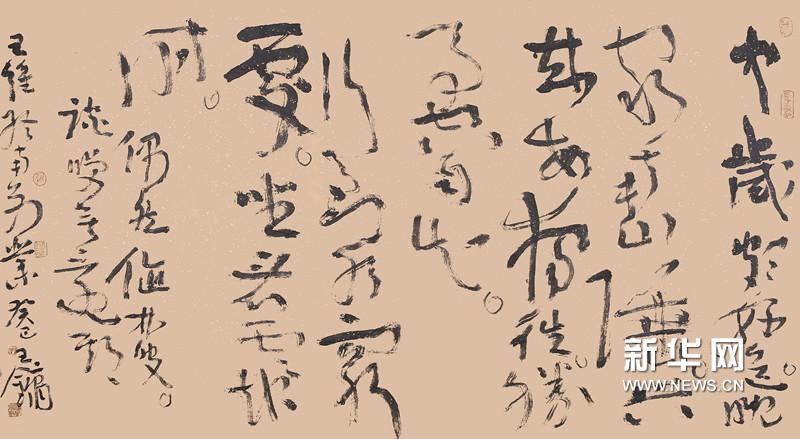 中歲頗好道。晚
家南山陲。興
来每獨往勝
事空自知。
行到水窮
處。坐看雲起
时。
偶然值林叟。
談笑无還期
王維终南别業癸巳王鏞
新华网
WWW.NEWS.CN